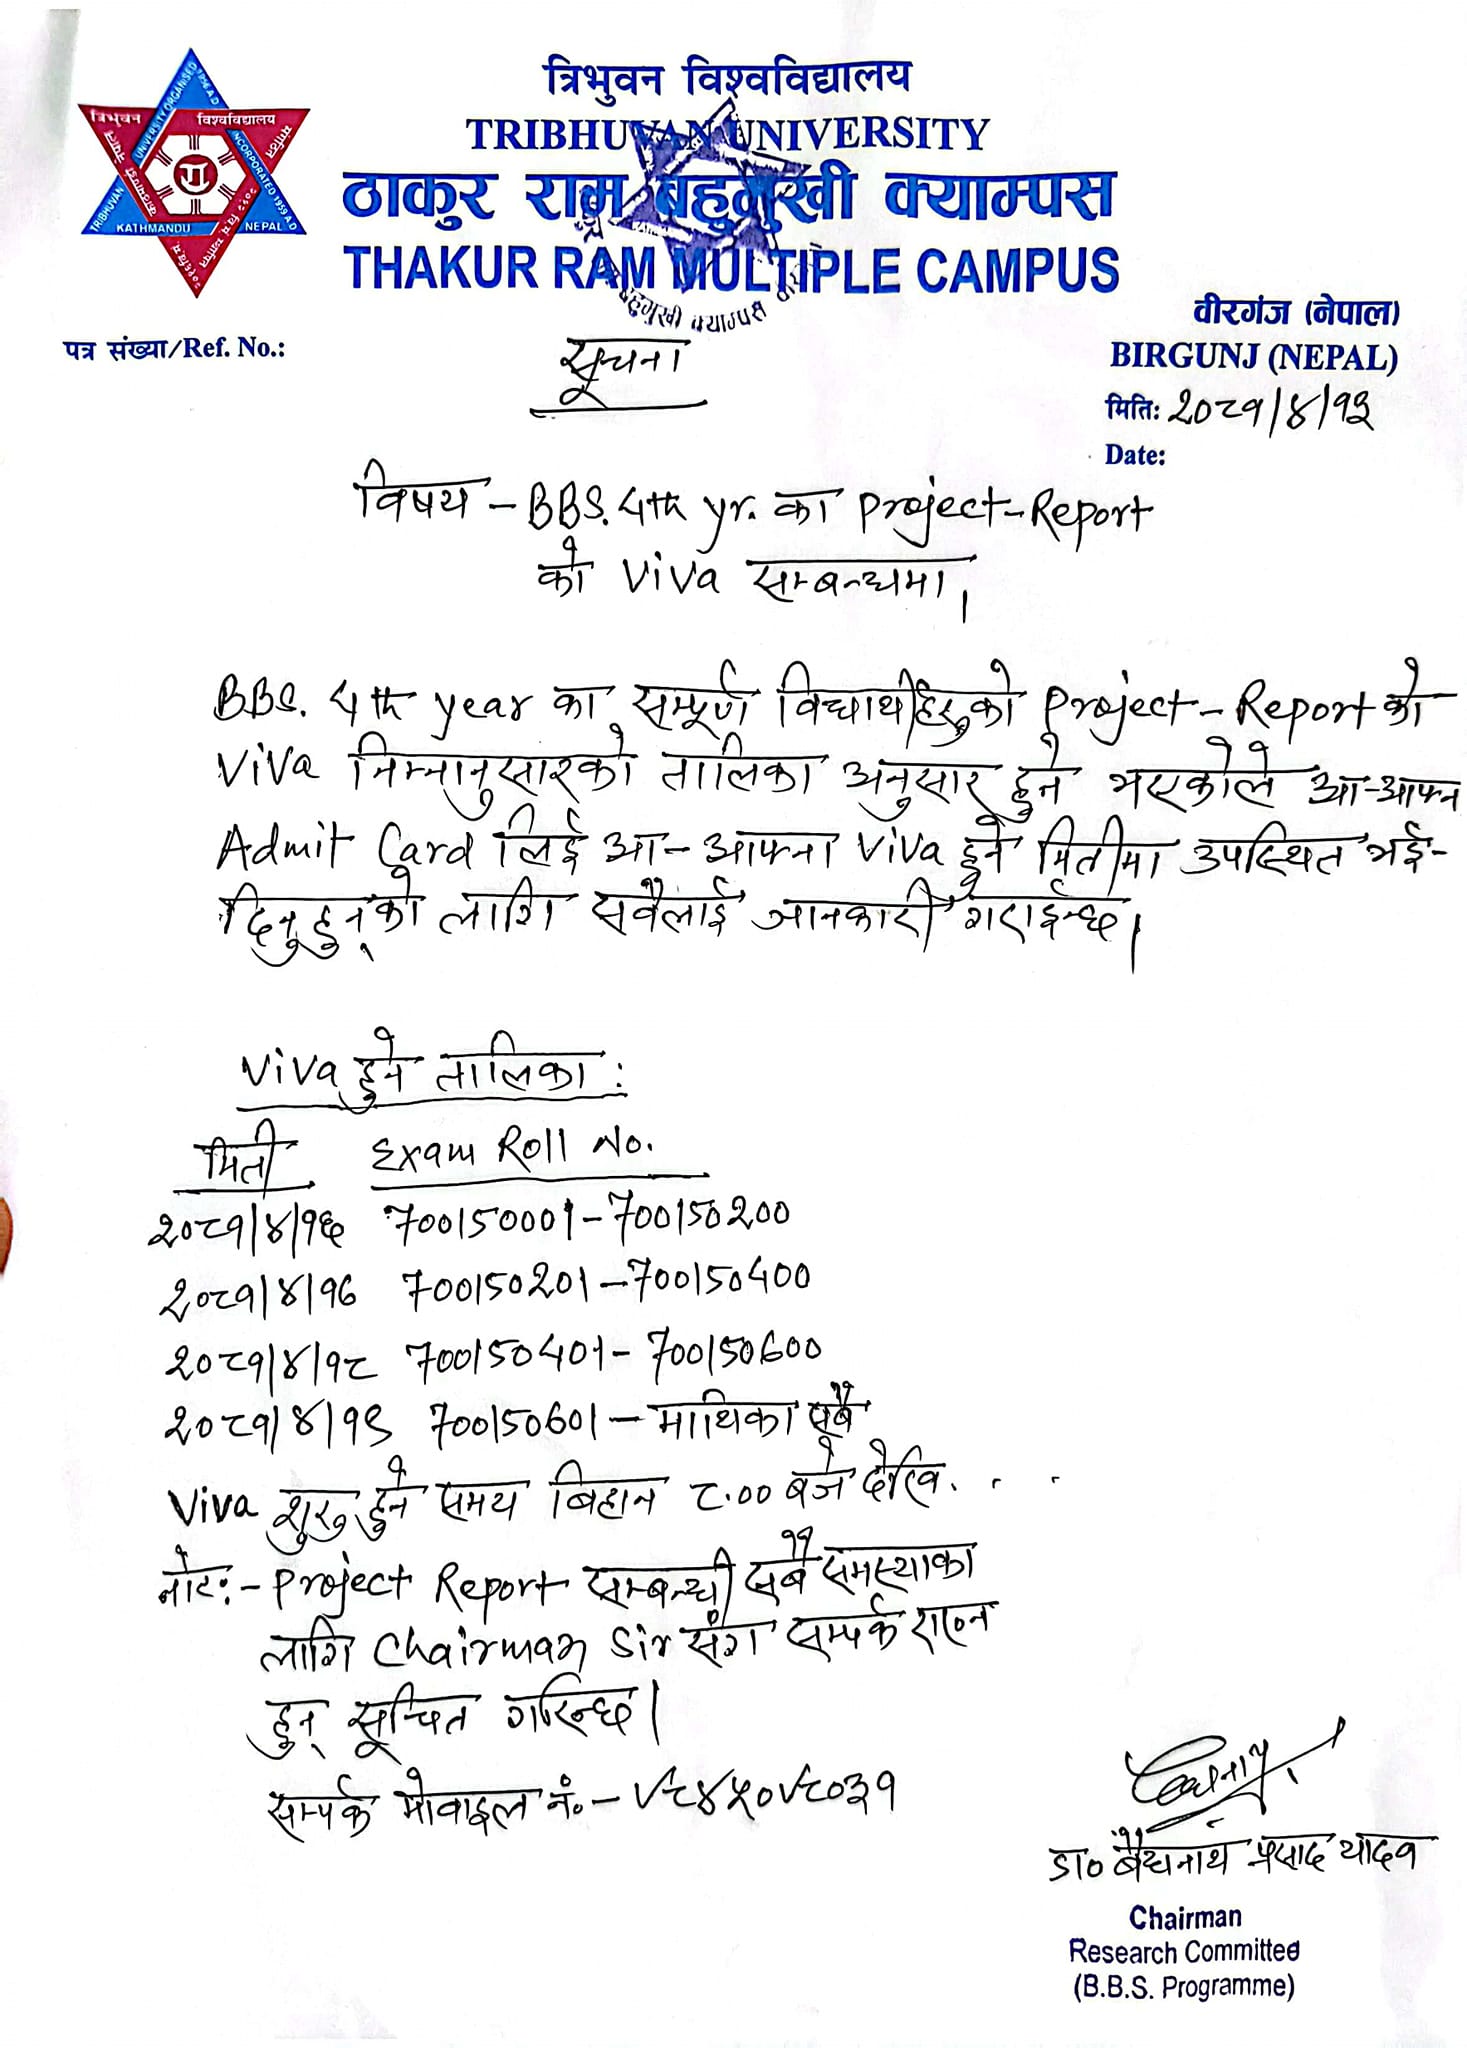 त्रिभुवन विश्वविद्यालय
TRIBHUVAN UNIVERSITY
ठाकुर राम बहुमुखी क्याम्पस
THAKUR RAM MULTIPLE CAMPUS
त्रिभुवन विश्वविद्यालय
UNIVERSITY ORGANISED 1956 A.D
INCORPORATED 1959 A.D
TRIBHUVAN KATHMANDU NEPAL
बहुमुखी क्याम्पस
वीरगंज (नेपाल)
पत्र संख्या/Ref. No.:
BIRGUNJ (NEPAL)
सूचना
मिति: २०८१/४/१३
Date:
विषय - BBS. 4th yr. का Project-Report
को Viva सम्बन्धमा।
BBS. 4th year का सम्पूर्ण विद्यार्थीहरुको Project-Report को
Viva निम्नानुसारको तालिका अनुसार हुने भएकोले आ-आफ्न
Admit Card लिई आ-आफ्ना Viva हुने मितीमा उपस्थित भई-
दिनुहुन्को लागि सवैलाई जानकारी गराईन्छ।
Viva हुने तालिका:
मिती Exam Roll No.
२०८१/४/१६ 700150001-700150200
२०८१/४/१७ 700150201-700150400
२०८१/४/१८ 700150401-700150600
२०८१/४/१९ 700150601-माथिका सबै
Viva शुरु हुने समय बिहान ८.०० बजे देखि. . .
नोट:- Project Report सम्बन्धी सबै समस्याका
लागि Chairman Sir संग सम्पर्क राख्न
हुन् सूचित गरिन्छ।
सम्पर्क मोबाइल नं०- ९८४५०९८०३१
डा० बैद्यनाथ प्रसाद यादव
Chairman
Research Committee
(B.B.S. Programme)